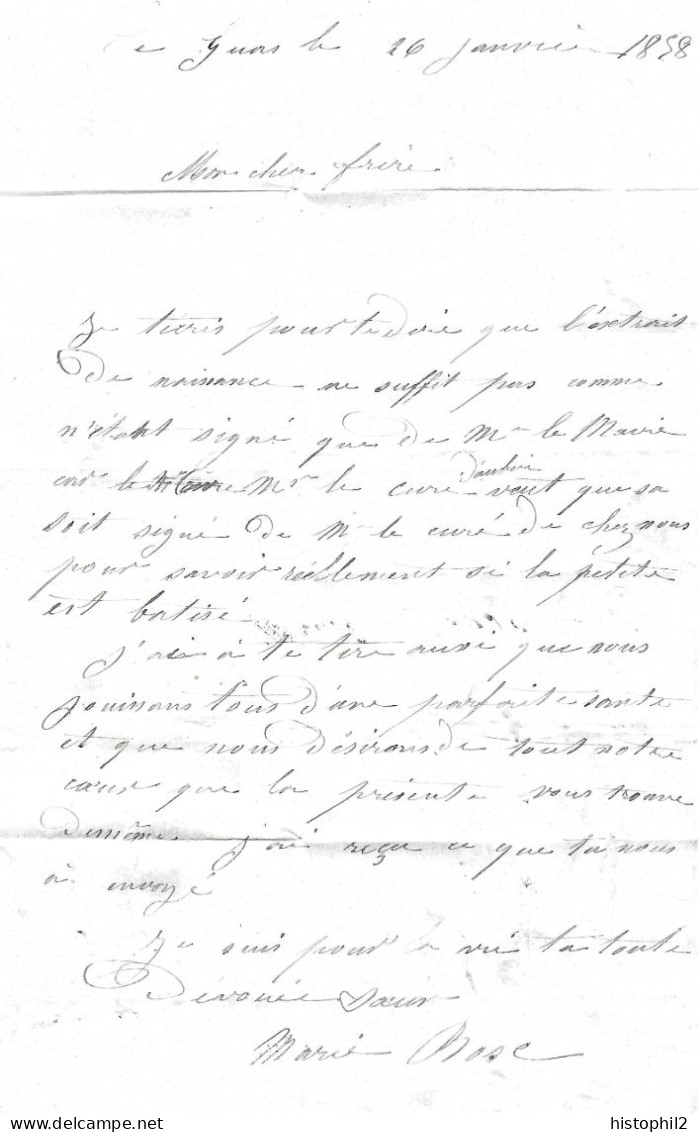 Guas le 26 janvie 1858
Mon cher frere
Je técris pour te dire que l'extrait
de naisance ne suffit pas comme
n'étant signé que de Mr le Maire
car le Mr le curé d'aubin veut que sa
soit signé de Mr le curé de chez nous
pour savoir réellement si la petite
est batisé
J'ai à te tire ausi que nous
jouisans tous d'une parfaite sante
et que nous désirons de tout notre
cœur que la présente vous trouve
de même j'ai reçu ce que tu nous
à envoyé
Je suis pour la vie ta toute
Dévouée sœur
Marie Bosc
histophil2